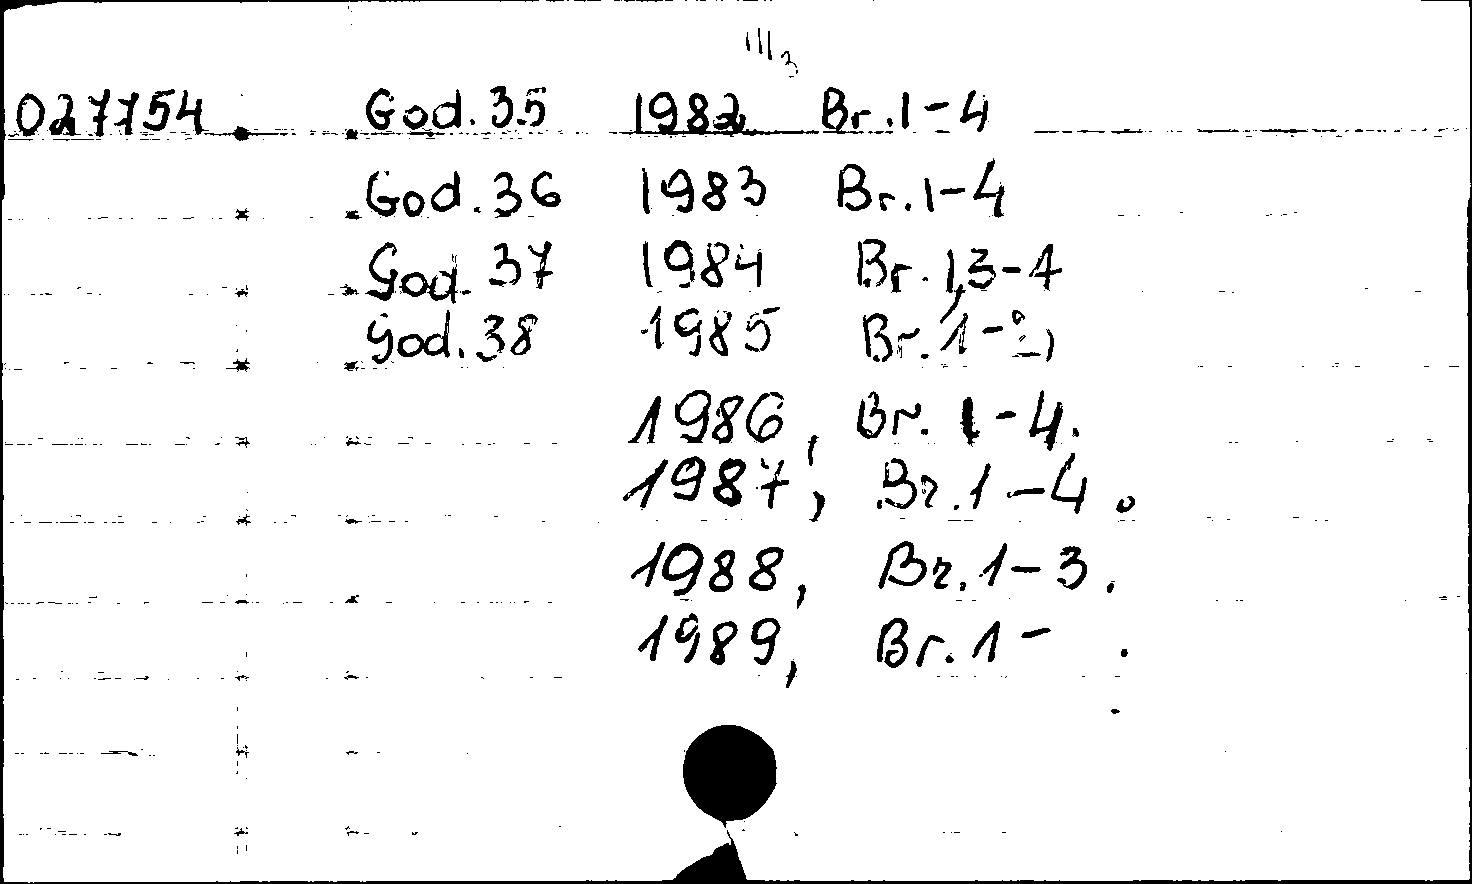 III3
027754 God. 35 1982 Br. 1-4
God. 36 1983 Br. 1-4
God. 37 1984 Br. 1,3-4
God. 38 1985 Br. 1-2,
1986, Br. 1-4.
1987, Br. 1-4.
1988, Br. 1-3.
1989, Br. 1- .